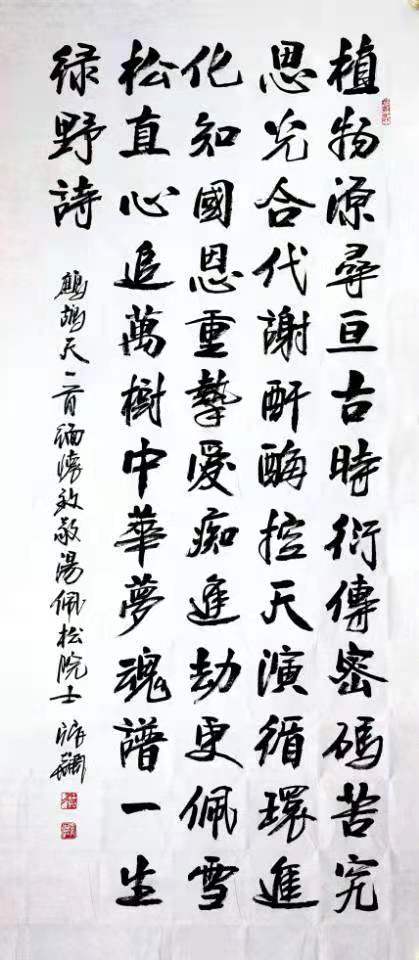 植物源尋亘古時衍傳密碼苦究
思光合代謝酐酶控天演循環進
化知國恩重摯愛痴進劫更佩雪
松直心追萬樹中華夢魂譜一生
绿野詩
鷓鴣天一首緬懷致敬湯佩松院士